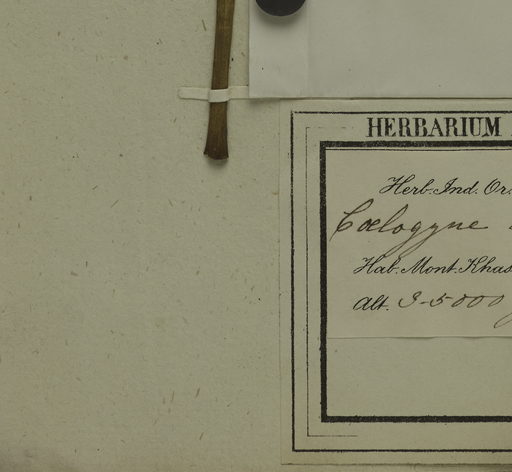 HERBARIUM
Herb. Ind. Or.
Cœlogyne
Hab. Mont. Khas
Alt. 3-5000